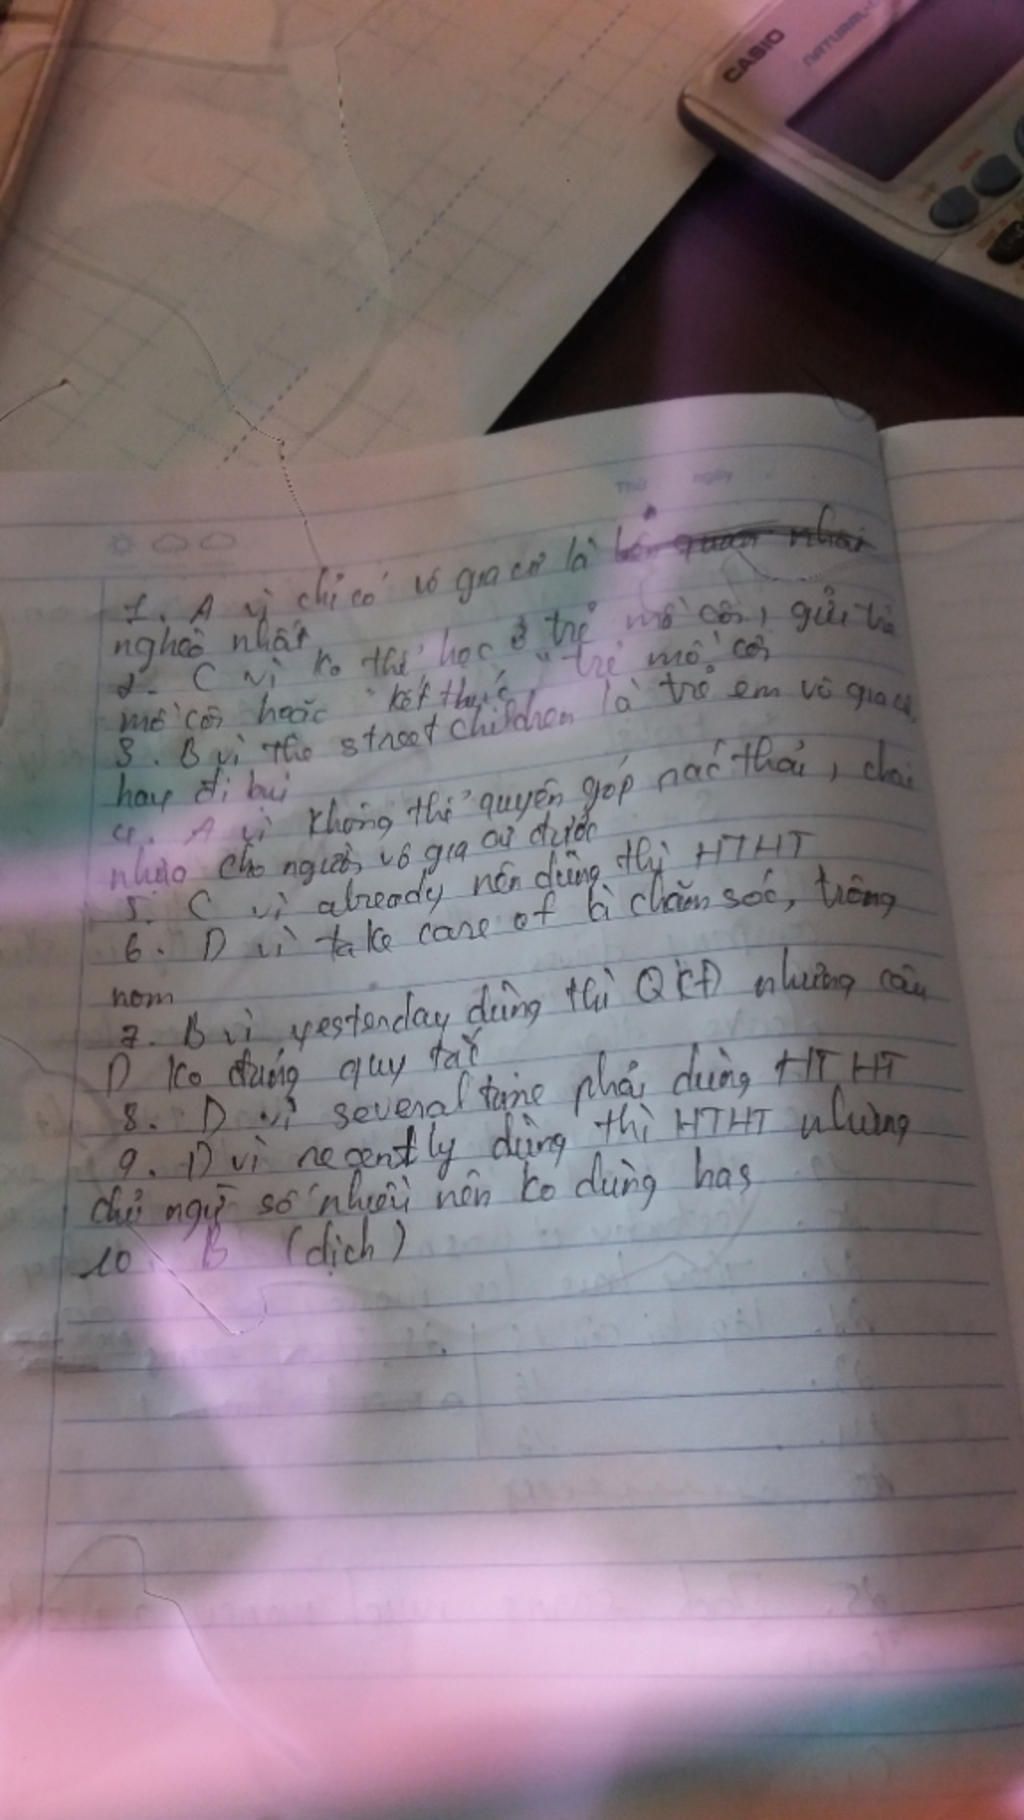 CASIO
NATURAL-
Thứ ngày
1. A vì chỉ có vô gia cư là
nghèo nhất
2. C vì ko thể học ở trẻ mồ côi, gửi trẻ
mồ côi hoặc "kết thúc" trẻ mồ côi
3. B vì the street children là trẻ em vô gia cư,
hay đi bụi
4. A vì không thể quyên góp rác thải, chai
nhựa cho người vô gia cư được
5. C vì already nên dùng thì HTHT
6. D vì take care of là chăm sóc, trông
nom
7. B vì yesterday dùng thì QKĐ nhưng câu
D ko đúng quy tắc
8. D vì several time phải dùng HTHT
9. D vì recently dùng thì HTHT nhưng
chủ ngữ số nhiều nên ko dùng has
10. B (dịch)